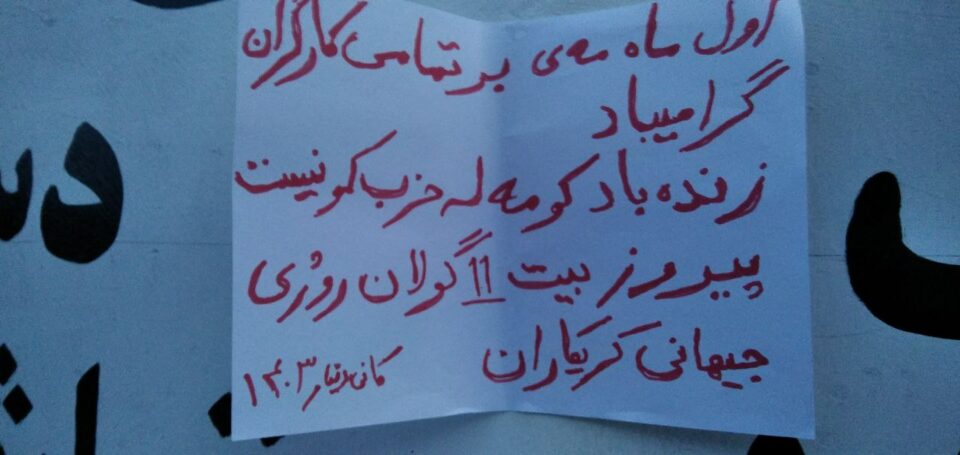 اول ماه مەی بر تمامی کارگران
گرامیباد
زنده باد کومه له حزب کمونیست
پیروز بیت 11 گولان روژی
جیهانی کریکاران
کانی دینار ۱۴۰۳